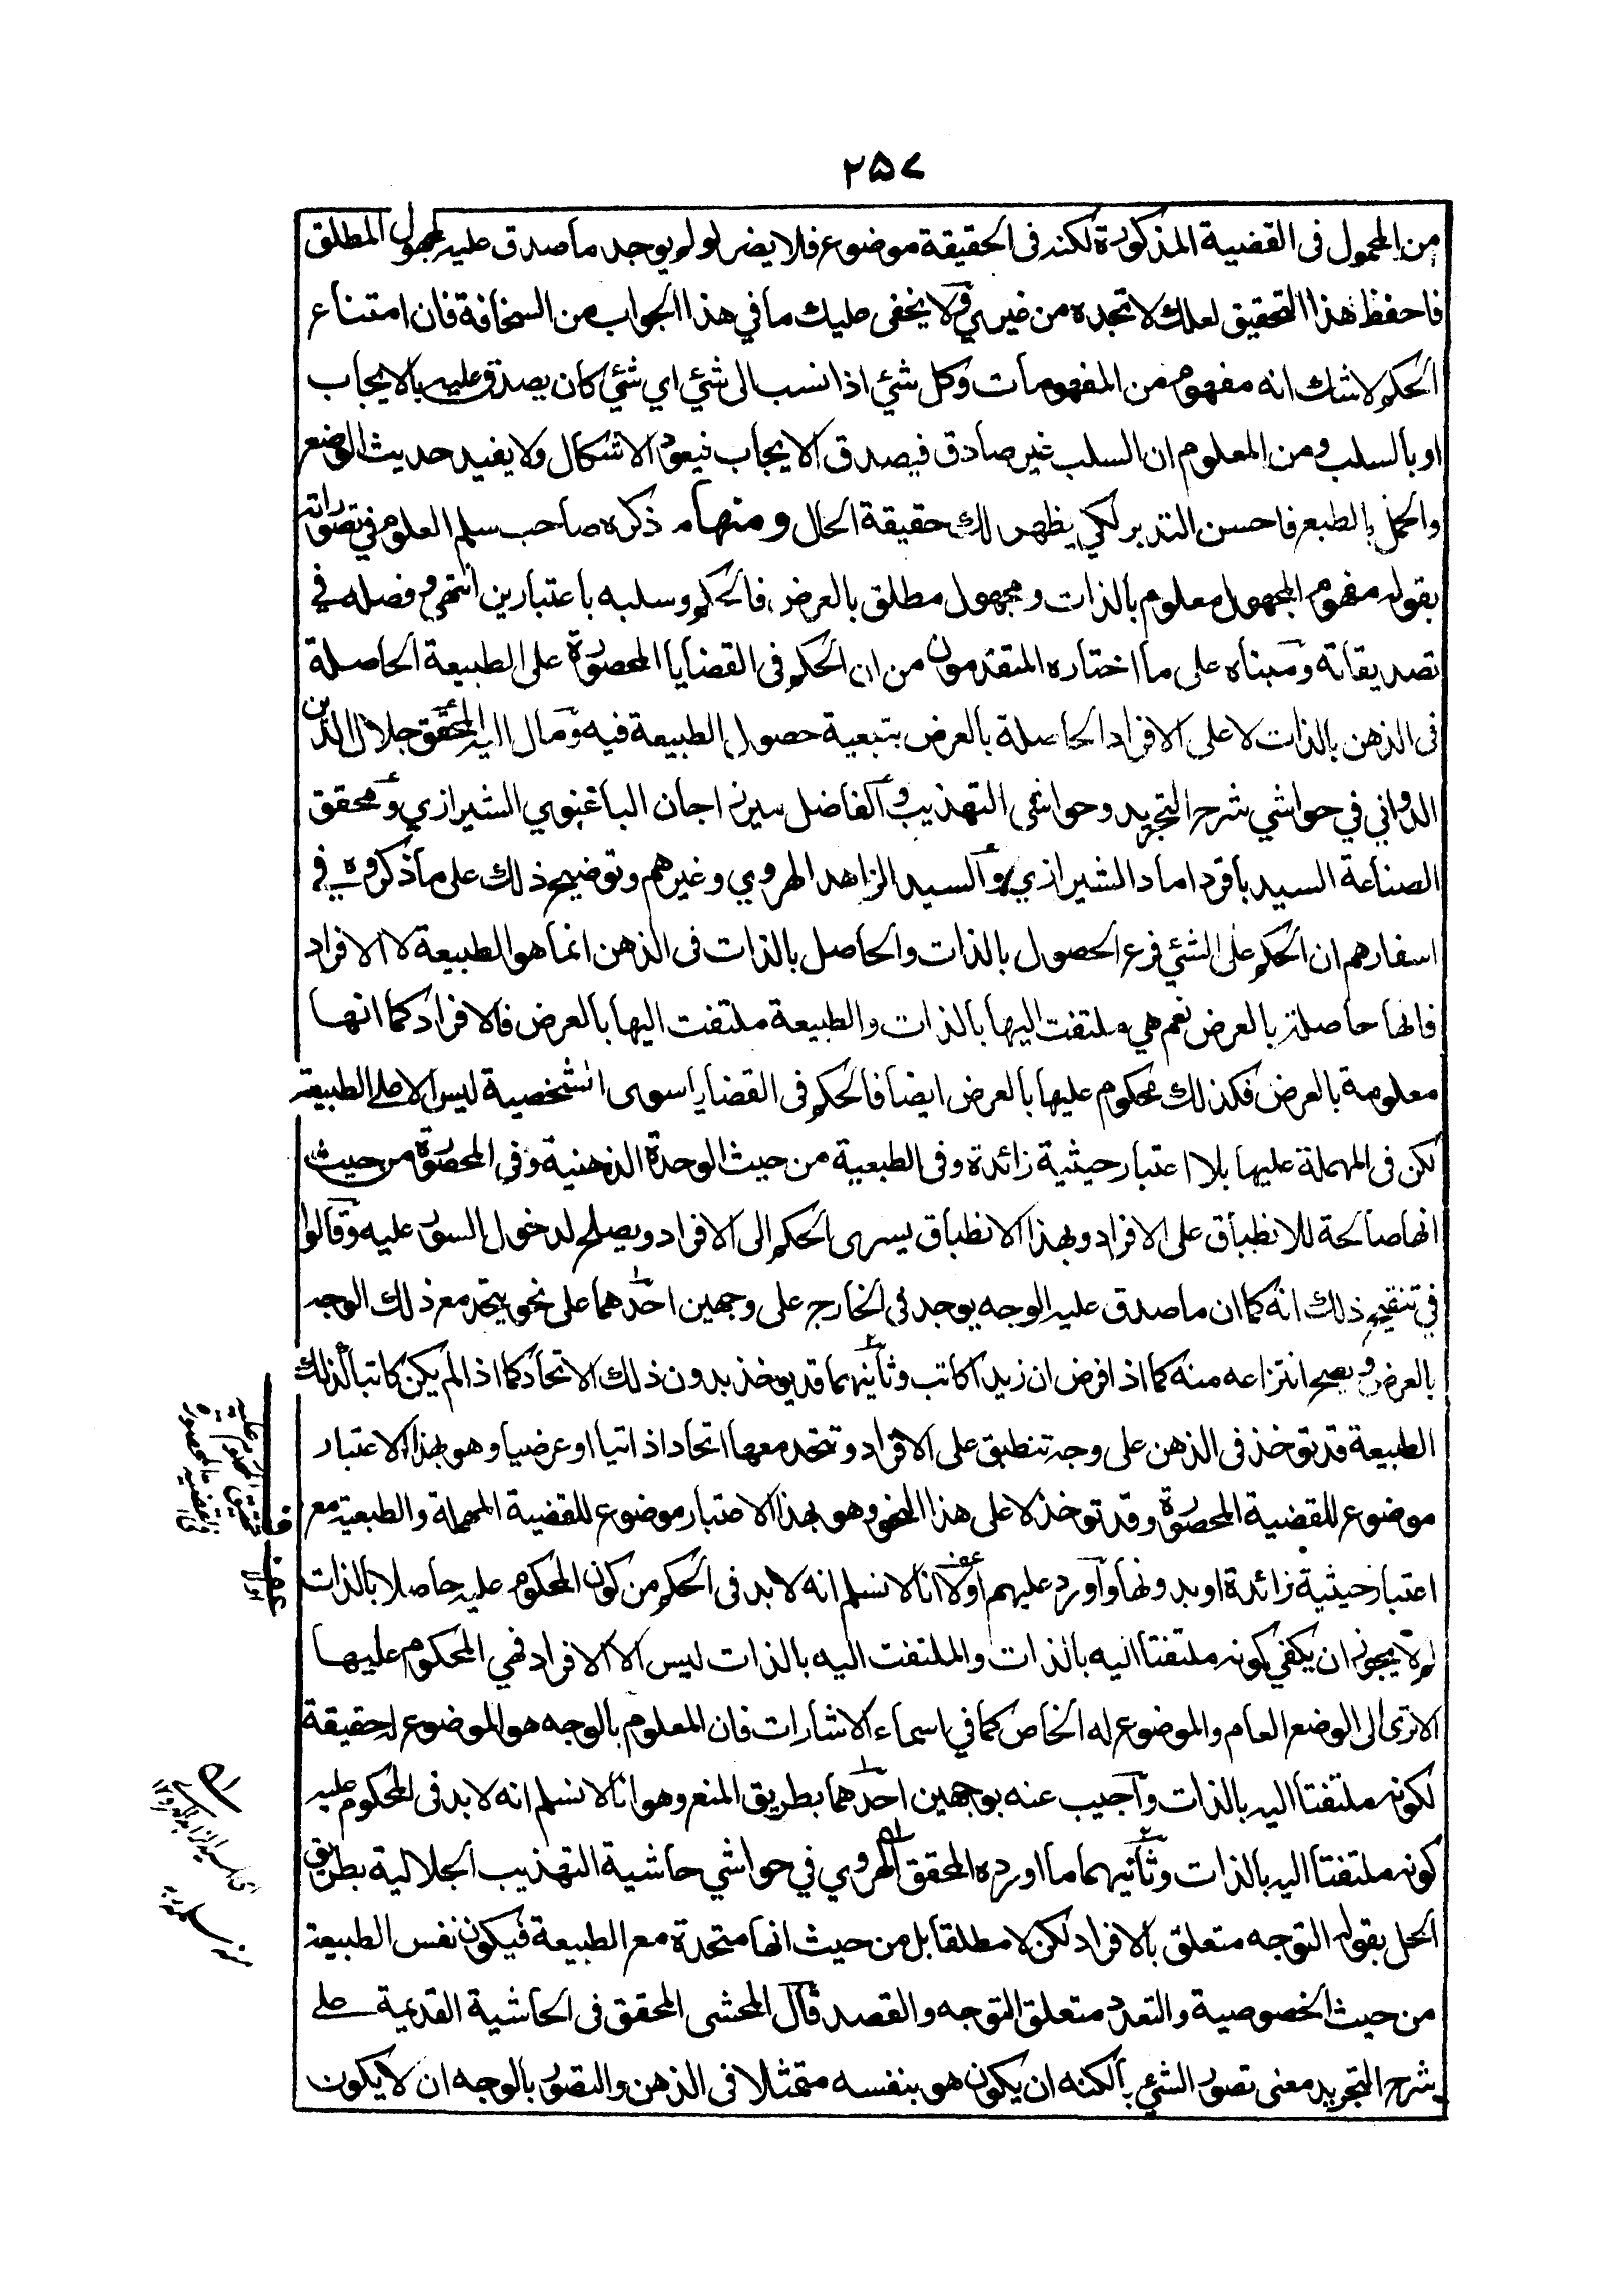 ۲۵۷
من المحمول فى القضية المذكورة لكنه فى الحقيقة موضوع فلا يضر لو لم يوجد ما صدق عليه المجهول المطلق
فاحفظ هذا التحقيق لعلك لا تجده من غيري ولا يخفى عليك ما في هذا الجواب من السخافة فان امتناع
الحكم لا شك انه مفهوم من المفهومات وكل شئ اذا نسب الى شئ اي شئ كان يصدق عليه بالايجاب
او بالسلب ومن المعلوم ان السلب غير صادق فيصدق الايجاب فيعود الاشكال ولا يفيد حديث الوضع
والحمل بالطبع فاحسن التدبر لكي يظهر لك حقيقة الحال ومنها ما ذكره صاحب سلم العلوم في تصوراته
بقوله مفهوم المجهول معلوم بالذات ومجهول مطلق بالعرض فالحكم وسلبه باعتبارين انتهى وفصله في
تصديقاته ومبناه على ما اختاره المتقدمون من ان الحكم فى القضايا المحصورة على الطبيعة الحاصلة
فى الذهن بالذات لا على الافراد الحاصلة بالعرض بتبعية حصول الطبيعة فيه ومال اليه المحقق جلال الدين
الدواني في حواشي شرح التجريد وحواشي التهذيب والفاضل ميرزاجان الباغنوي الشيرازي ومحقق
الصناعة السيد باقر داماد الشيرازي والسيد الزاهد الهروي وغيرهم وتوضيح ذلك على ما ذكروه في
اسفارهم ان الحكم على الشئ فرع الحصول بالذات والحاصل بالذات فى الذهن انما هو الطبيعة لا الافراد
فانها حاصلة بالعرض نعم هي ملتفت اليها بالذات والطبيعة ملتفت اليها بالعرض فالافراد كما انها
معلومة بالعرض فكذلك محكوم عليها بالعرض ايضا فالحكم فى القضايا سوى الشخصية ليس الا على الطبيعة
لكن فى المهملة عليها بلا اعتبار حيثية زائدة وفى الطبعية من حيث الوحدة الذهنية وفي المحصورة من حيث
انها صالحة للانطباق على الافراد وبهذا الانطباق يسرى الحكم الى الافراد ويصلح لدخول السور عليه وقالوا
في تنقيح ذلك انه كما ان ما صدق عليه الوجه يوجد فى الخارج على وجهين احدهما على نحو يتحد مع ذلك الوجه
بالعرض ويصح انتزاعه منه كما اذا فرض ان زيدا كاتب وثانيهما قد يوخذ بدون ذلك الاتحاد كما اذا لم يكن كاتبا كذلك
الطبيعة قد توخذ فى الذهن على وجه تنطبق على الافراد وتتحد معها اتحادا ذاتيا او عرضيا وهو بهذا الاعتبار
موضوع للقضية المحصورة وقد توخذ لا على هذا النحو وهو بهذا الاعتبار موضوع للقضية المهملة والطبعية مع
اعتبار حيثية زائدة او بدونها واورد عليهم اولا انا لا نسلم انه لا بد فى الحكم من كون المحكوم عليه حاصلا بالذات
لم لا يجوز ان يكفي كونه ملتفتا اليه بالذات والملتفت اليه بالذات ليس الا الافراد فهي المحكوم عليها
الا ترى الى الوضع العام والموضوع له الخاص كما في اسماء الاشارات فان المعلوم بالوجه هو الموضوع له حقيقة
لكونه ملتفتا اليه بالذات واجيب عنه بوجهين احدهما بطريق المنع وهو انا لا نسلم انه لا بد فى المحكوم عليه
كونه ملتفتا اليه بالذات وثانيهما ما اورده المحقق الهروي في حواشي حاشية التهذيب الجلالية بطريق
الحل بقوله التوجه متعلق بالافراد لكن لا مطلقا بل من حيث انها متحدة مع الطبيعة فيكون نفس الطبيعة
من حيث الخصوصية والتعدد متعلق التوجه والقصد قال المحشى المحقق فى الحاشية القديمة على
شرح التجريد معنى تصور الشئ بالكنه ان يكون هو بنفسه متمثلا فى الذهن والتصور بالوجه ان لا يكون